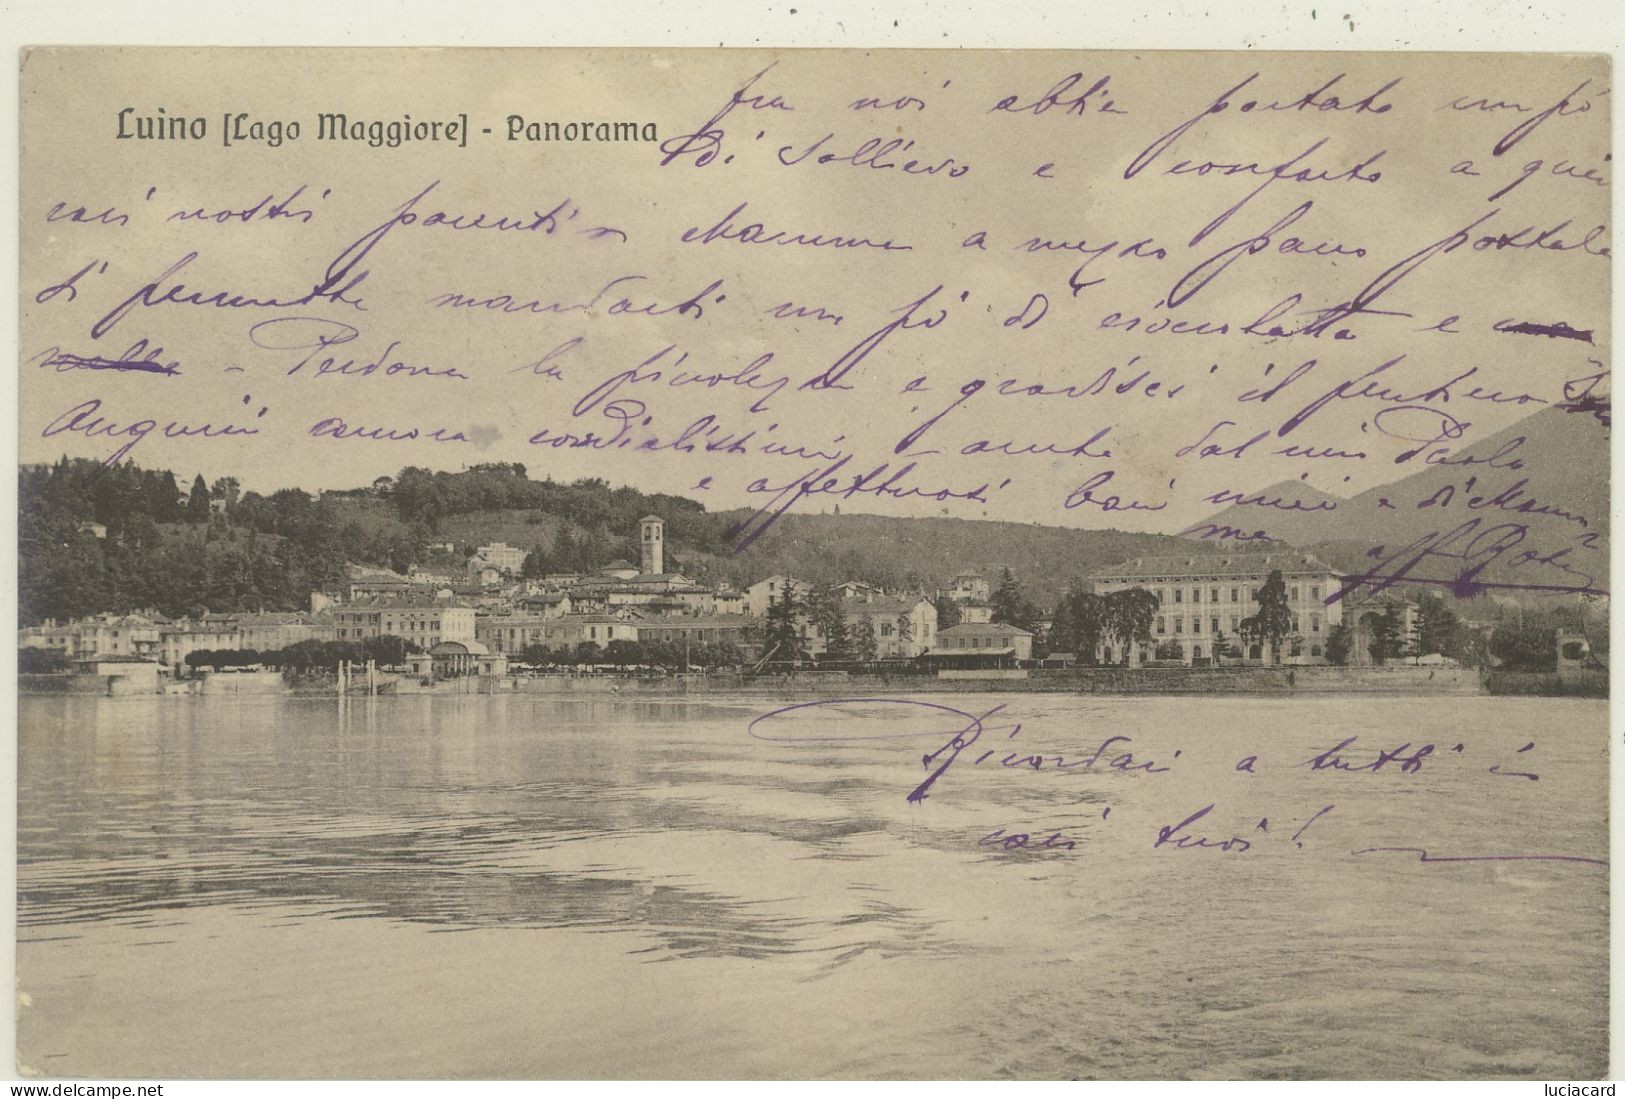 Luino [Lago Maggiore] - Panorama
fra noi abbia portato un pò
di Sollievo e conforto a quei
cari nostri parenti - Mamma a mezzo pacco postale
ti permette mandarti un pò di cioccolatta e
- Perdona la piccolezza e gradisci il pensiero -
Auguri ancora cordialissimi - anche dal mio Paolo
e affettuosi baci miei e di Mam
ma aff
Ricordai a tutti i
cari tuoi!
www.delcampe.net
luciacard